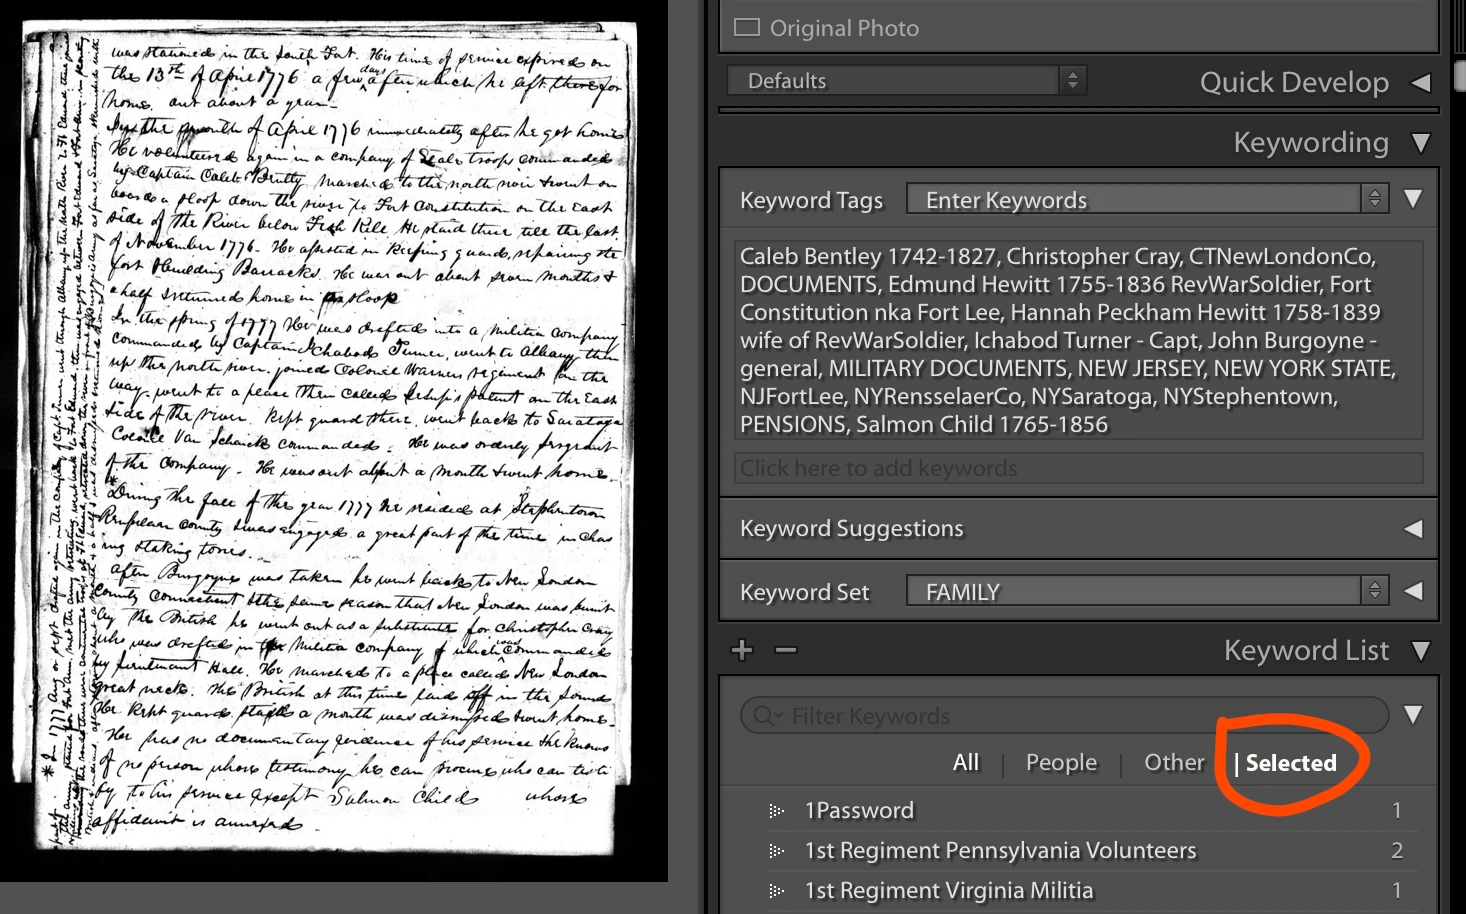 was stationed in the South Fort. His time of service expired on
the 13th of April 1776 a few days after which he left there for
home. out about a year.
In the month of April 1776 immediately after he got home
He volunteered again in a company of State troops commanded
by Captain Caleb Bently marched to the north river & went on
board a sloop down the river to Fort Constitution on the East
side of the River below Fish Kill. He staid there till the last
of November 1776. He assisted in keeping guard, repairing the
fort & building Barracks. He was out about seven months &
a half & returned home in sloop
In the spring of 1777 He was drafted into a militia company
commanded by Captain Ichabod Turner, went to Albany then
up the north river. joined Colonel Warners regiment on the
way. went to a place then called patent on the East
side of the river. kept guard there. went back to Saratoga
Colonel Van Schaick commanded. He was orderly sergeant
of the company. He was out about a month & went home.
*During the fall of the year 1777 he resided at Stephentown
Rensselaer County & was engaged a great part of the time in chas
ing & taking tories.
After Burgoyne was taken he went back to New London
County Connecticut & the same season that New London was burnt
by the British he went out as a substitute for Christopher Cray
who was drafted in Militia company which was commanded
by Lieutenant Hall. He marched to a place called New London
great neck. The British at this time laid off in the Sound
He kept guard a month was dismissed & went home.
He has no documentary evidence of his service & he knows
of no person whose testimony he can procure who can testi
fy to his service except Salmon Childs whose
affidavit is annexed.
* In 1777 Aug or Sept drafted again in the company of Capt. Turner, went through Albany up the North River
Original Photo
Defaults
Quick Develop
Keywording
Keyword Tags
Enter Keywords
Caleb Bentley 1742-1827, Christopher Cray, CTNewLondonCo,
DOCUMENTS, Edmund Hewitt 1755-1836 RevWarSoldier, Fort
Constitution nka Fort Lee, Hannah Peckham Hewitt 1758-1839
wife of RevWarSoldier, Ichabod Turner - Capt, John Burgoyne -
general, MILITARY DOCUMENTS, NEW JERSEY, NEW YORK STATE,
NJFortLee, NYRensselaerCo, NYSaratoga, NYStephentown,
PENSIONS, Salmon Child 1765-1856
Click here to add keywords
Keyword Suggestions
Keyword Set
FAMILY
+ − Keyword List
Filter Keywords
All | People | Other | Selected
1Password 1
1st Regiment Pennsylvania Volunteers 2
1st Regiment Virginia Militia 1